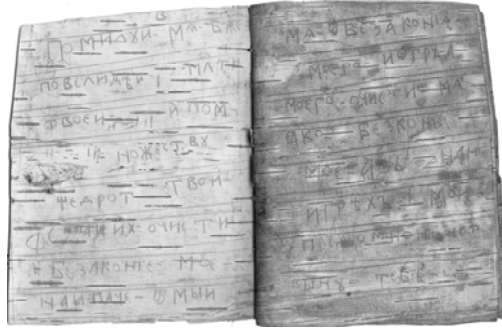 ПОМИЛУИ МА БЖЕ
ПОВЕЛИЦѢИ МЛТИ
ТВОЕИ И ПОМ
НОЖЕСТВУ
ЩЕДРОТ ТВОИ
ИХ ОЧИСТИ
БЕЗАКОНІЕ МО
НАИПАЧЕ ОМЫИ
МА ОБЕЗАКОНІА
МОЕГО ИОГРЕХА
МОЕГО ОЧИСТИ МА
ѦКО БЕЗКОНІЕ
МОЕ АЗЪ ЗНАЮ
ИГРѢХЪ МОИ
ВЫНУ ТЕБЕ